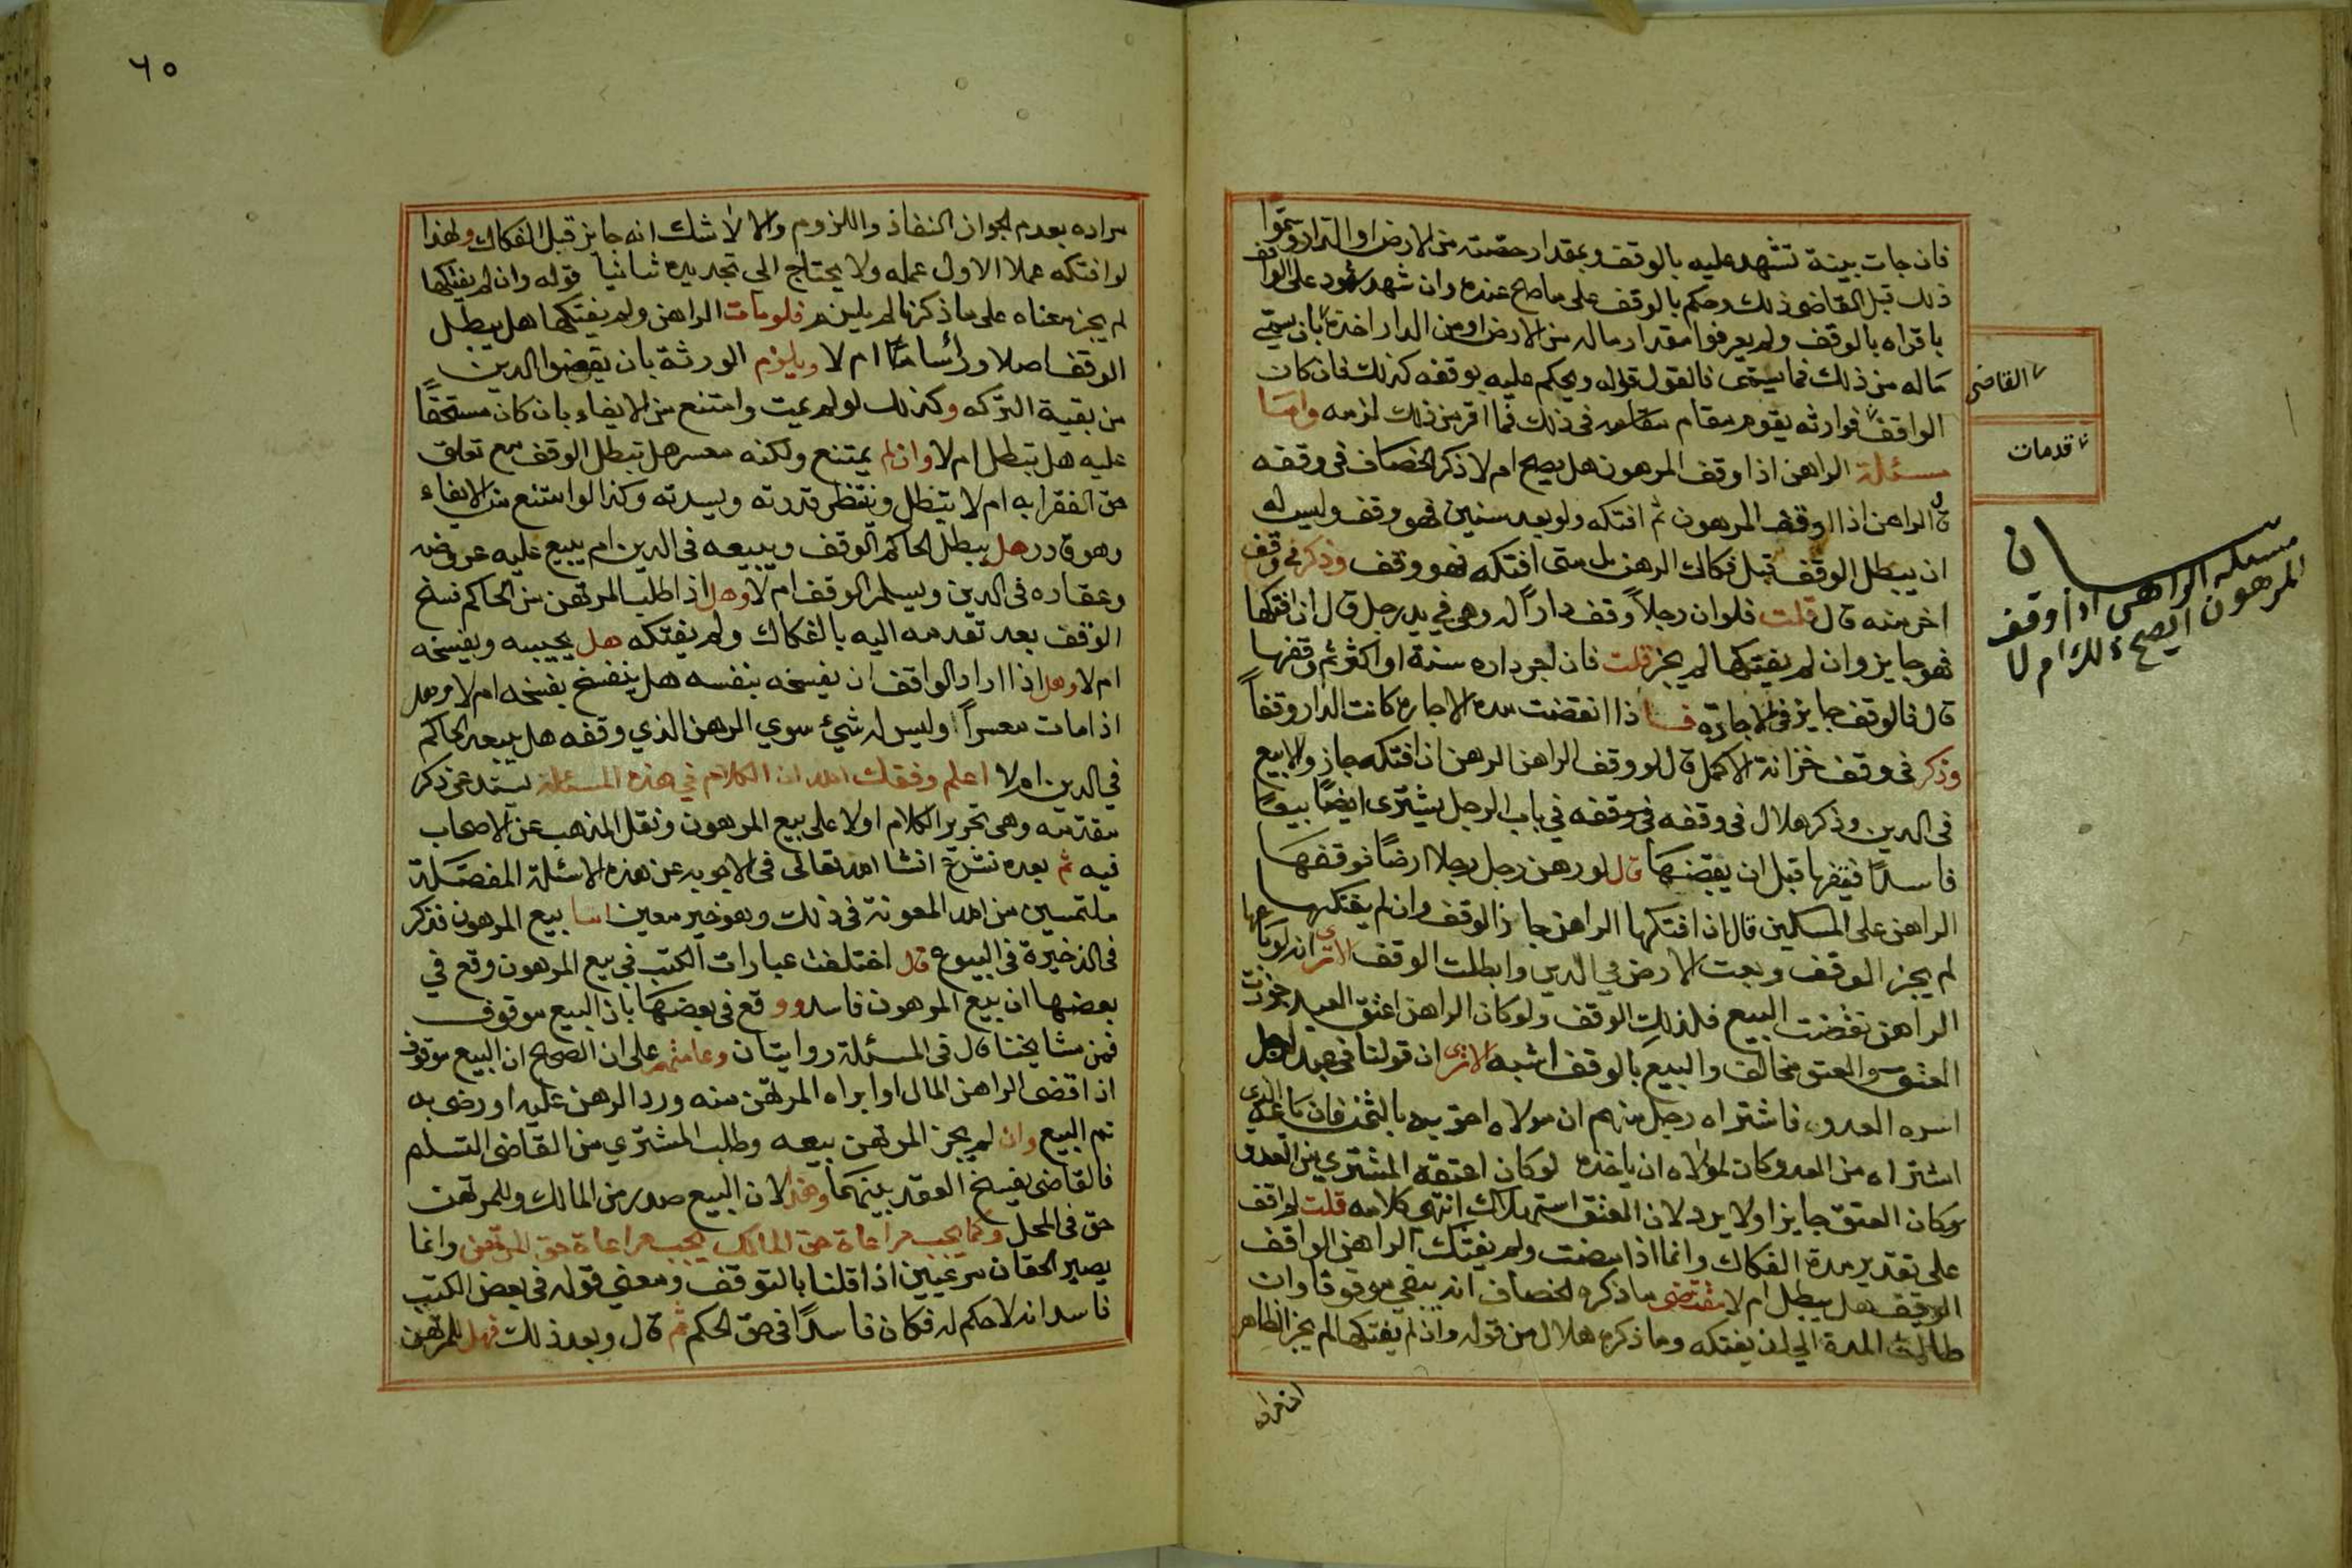 فان جات بينة تشهد عليه بالوقف وبمقدار حصته من الارض او الدار وسموا
ذلك قبل القاضي ذلك وحكم بالوقف على ما صح عنده وان شهد شهود على الواقف
باقراه بالوقف ولم يعرفوا مقدار ماله من الارض او من الدار اخذه بان يسمي
ماله من ذلك فما يسمى فالقول قوله ويحكم عليه بوقفه كذلك فان كان
الواقف فوارثه يقوم مقام مقامه في ذلك فما اقر من ذلك لزمه واما
مسئلة الراهن اذا وقف المرهون هل يصح ام لا ذكر الخصاف في وقفه
ان الراهن اذا اوقف المرهون ثم افتكه ولو بعد سنين فهو وقف وليس له
ان يبطل الوقف قبل فكاك الرهن بل متى افتكه فهو وقف وذكر في وقف
اخر منه قال قلت فلو ان رجلاً وقف داراً له وهي في يد رجل قال ان افتكها
فهو جايز وان لم يفتكها لم يجز قلت فان اجر داره سنة او اكثر ثم وقفها
قال فالوقف جايز في الاجارة فاذا انقضت مدة الاجارة كانت الدار وقفاً
وذكر في وقف خزانة الاكمل قال لو وقف الراهن الرهن ان افتكه جاز والا بيع
في الدين وذكر هلال في وقفه في وقفه في باب الرجل يشتري ايضاً بيعاً
فاسداً فيقفها قبل ان يقبضها قال لو رهن رجل رجلا ارضاً فوقفها
الراهن على المسكلين قال ان افتكها الراهن جاز الوقف وان لم يفتكها
لم يجز الوقف وبعت الارض في الدين وابطلت الوقف الا ترى انه لو باعها
الراهن نقضت البيع فلذلك الوقف ولو كان الراهن اعتق العبد جوزت
العتق والعتق مخالف والبيع بالوقف اشبه الا ترى ان قولنا في عبد لرجل
اسره العدو فاشتراه رجل منهم ان مولاه احق به بالثمن فان باعه الذي
اشتراه من العدو كان لمولاه ان ياخذه لو كان اعتقه المشتري من العدو
وكان العتق جايزا ولا يرد لان العتق استهلاك انتهى كلامه قلت لو اقف
على تقدير مدة الفكاك وانما اذا مضت ولم يفتك الراهن الواقف
الوقف هل يبطل ام لا مقتضى ما ذكره الخصاف انه يبقى موقوفا وان
طالت المدة الى ان يفتكه وما ذكره هلال من قوله وان لم يفتكها لم يجز الظاهر
القاضي
قدمات
مسئلة الراهن اذا وقف
المرهون ايصح ذلك ام لا
٦٠
مراده بعدم الجواز النفاذ واللزوم والا لا شك انه جايز قبل الفكاك ولهذا
لو افتكه عملا الاول عمله ولا يحتاج الى تجديده ثانيا قوله وان لم يفتكها
لم يجز معناه على ما ذكرنا لم يلزم فلو مات الراهن ولم يفتكها هل يبطل
الوقف اصلا ورأسا ام لا ويلزم الورثة بان يقضوا الدين
من بقية التركه وكذلك لو لم يمت وامتنع من الايفاء بان كان مستحقاً
عليه هل تبطل ام لا وان لم يمتنع ولكنه معسر هل تبطل الوقف مع تعلق
حق الفقرا به ام لا تبطل وننتظر قدرته ويسرته وكذا لو امتنع من الايفاء
وهو قادر هل يبطل الحاكم الوقف ويبيعه في الدين ام يبيع عليه عروضه
وعقاره في الدين ويسلم الوقف ام لا وهل اذا طلب المرتهن من الحاكم فسخ
الوقف بعد تقدمه اليه بالفكاك ولم يفتكه هل يجيبه ويفسخه
ام لا وهل اذا اراد الواقف ان يفسخه بنفسه هل ينفسخ بفسخه ام لا وهل
اذا مات معسراً وليس له شئ سوي الرهن الذي وقفه هل يبيعه الحاكم
في الدين ام لا اعلم وفقك الله ان الكلام في هذه المسئلة يستدعى ذكر
مقدمه وهي تحرير الكلام اولا على بيع المرهون ونقل المذهب عن الاصحاب
فيه ثم بعده نشرع انشا الله تعالى في الاجوبه عن هذه الاسئلة المفصلة
ملتمسين من الله المعونة في ذلك وهو خير معين اما بيع المرهون فذكر
في الذخيرة في البيوع قال اختلفت عبارات الكتب في بيع المرهون وقع في
بعضها ان بيع المرهون فاسد ووقع في بعضها بان البيع موقوف
فمن مشايخنا قال في المسئلة روايتان وعامتهم على ان الصحيح ان البيع موقوف
اذا قضى الراهن المال او ابراه المرتهن منه ورد الرهن عليه او رضى به
تم البيع وان لم يجز المرتهن بيعه وطلب المشتري من القاضي التسلم
فالقاضي يفسخ العقد بينهما وهذا لان البيع صدر من المالك وللمرتهن
حق في المحل وكما يجب مراعاة حق المالك يجب مراعاة حق المرتهن وانما
يصير الحقان مرعيين اذا قلنا بالتوقف ومعني قوله في بعض الكتب
فاسد انه لا حكم له فكان فاسداً في حق الحكم ثم قال وبعد ذلك فهل للمرتهن